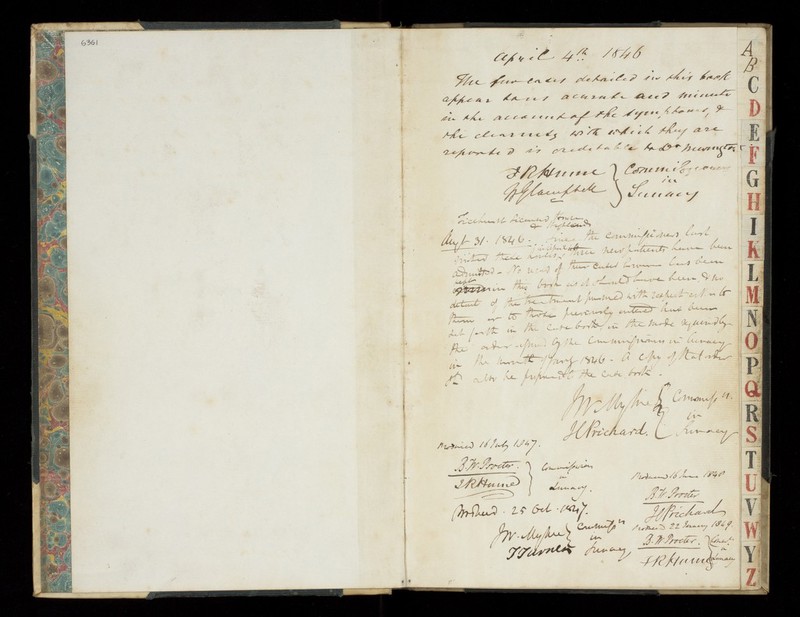 6361
April 4th 1846
The few cases detailed in this book
appear to us accurate and minute
in the account of the symptoms, &
the clearness with which they are
reported is creditable to Dr Newington
J R Hume } Commissioners
W G Campbell } in Lunacy
Ticehurst
Augt 31. 1846. Since the commissioners last
visited these three new patients have been
admitted - No of their cases however has been
in this book as it should have been & no
detail of the treatment pursued with respect either to
them or to those previously entered has been
set forth in the case book in the mode required by
the order of the Commissioners in Lunacy
in the month of 1846 - A copy of that order
to be prefixed to the case book
J W Mylne } Commissrs
J C Prichard } in Lunacy
Received 16 July 1847.
B. W. Procter } Commissioners
J R Hume } in Lunacy.
25 Oct. 1847.
J W. Mylne } Commissrs
T Turner } in Lunacy
16 June 1848
B. W. Procter
J C Prichard
22 1849.
B. W. Procter.
J R Hume } in Lunacy
A
B
C
D
E
F
G
H
I
K
L
M
N
O
P
Q
R
S
T
U
V
W
Y
Z